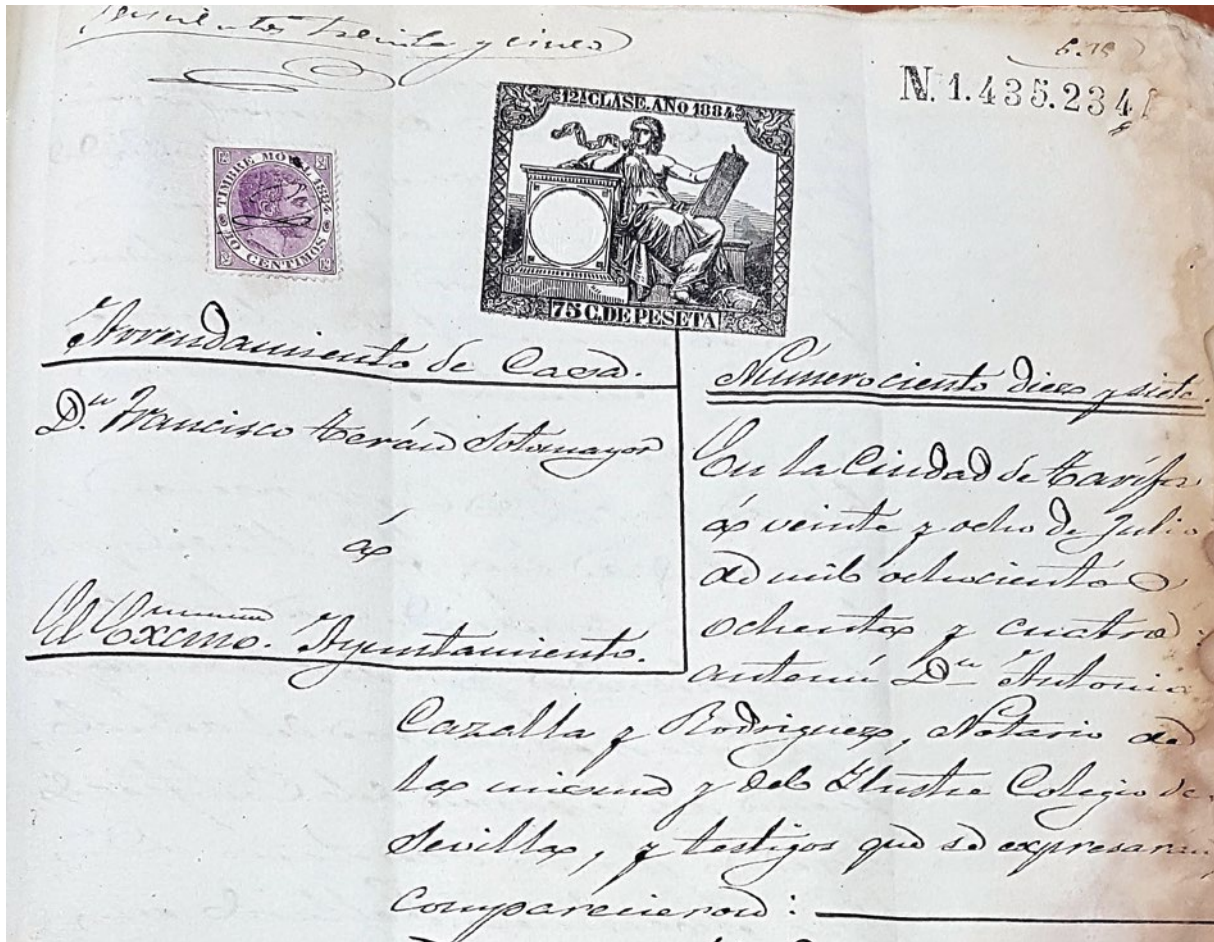 treinta y cinco
N. 1.435.234
12ª CLASE. AÑO 1884
TIMBRE MÓVIL 1884
10 CENTIMOS
75 C. DE PESETA
Arrendamiento de Casa.
Dn. Francisco Terán Sotomayor
á
El Excmo. Ayuntamiento.
Número ciento diez y siete.
En la Ciudad de Tarifa
á veinte y ocho de Julio
de mil ochocientos
ochenta y cuatro:
ante mí Dn. Antonio
Cazalla y Rodriguez, Notario de
la misma y del Ilustre Colegio de
Sevilla, y testigos que se expresarán,
comparecieron: